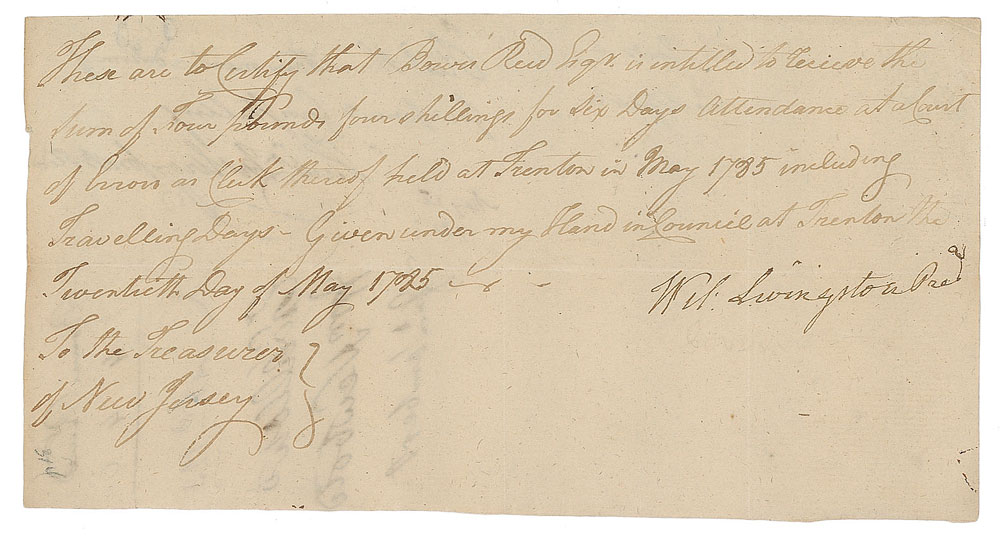 These are to Certify that Bowes Reed Esqr. is intitled to recieve the
sum of Four Pounds four shillings for six Days Attendance at a Court
of Errors as Clerk thereof held at Trenton in May 1785 including
Travelling Days - Given under my Hand in Council at Trenton the
Twentieth Day of May 1785
Wil. Livingston Presd
To the Treasurer
of New Jersey